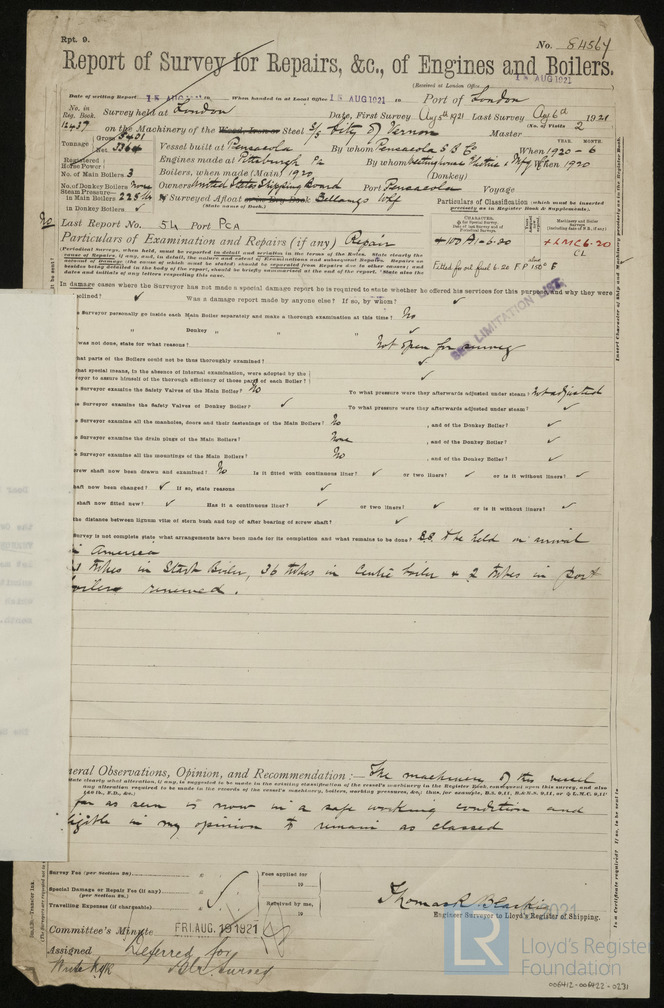 Rpt. 9.
No. 84564
Report of Survey for Repairs, &c., of Engines and Boilers.
(Received at London Office
15 AUG 1921
Date of writing Report 15 AUG 1921 When handed in at Local Office 15 AUG 1921 Port of London
No. in Reg. Book. Survey held at London Date, First Survey Aug 5th 1921 Last Survey Aug 6th 1921
12437 on the Machinery of the Wood, Iron or Steel S/S City of Vernon Master (No. of Visits 2
Tonnage Gross 5401 Vessel built at Pensacola By whom Pensacola S B Co When 1920 - 6
Net 3364
YEAR. MONTH.
Registered Horse Power Engines made at Pittsburgh Pa By whom Westinghouse Electric & Mfg When 1920
No. of Main Boilers 3 Boilers, when made (Main) 1920 (Donkey)
No. of Donkey Boilers None Owners United States Shipping Board Port Pensacola Voyage
Steam Pressure in Main Boilers
in Donkey Boilers ✓
Surveyed Afloat or in Dry Dock Bellamys Whf
(State name of Dock.)
Particulars of Classification (which must be inserted precisely as in Register Book & Supplements).
Last Report No. 54 Port Pca
+100 A1-6.20
+LMC 6.20
CL
Fitted for oil fuel 6.20 F.P. 150° F
Particulars of Examination and Repairs (if any) Repair
(Periodical surveys, when held, must be reported in detail and seriatim in the terms of the Rules. State clearly the
SEE LIMITATION LIST.
In damage cases where the Surveyor has not made a special damage report he is required to state whether he offered his services for this purpose and why they were
clined? ✓ Was a damage report made by anyone else? If so, by whom? ✓
Surveyor personally go inside each Main Boiler separately and make a thorough examination at this time? No
" Donkey " " " ✓
was not done, state for what reasons? Not open for survey
at parts of the Boilers could not be thus thoroughly examined? ✓
at special means, in the absence of internal examination, were adopted by the
eyor to assure himself of the thorough efficiency of these parts of each Boiler? ✓
Surveyor examine the Safety Valves of the Main Boiler? No To what pressure were they afterwards adjusted under steam? Not adjusted
Surveyor examine the Safety Valves of Donkey Boiler? ✓ To what pressure were they afterwards adjusted under steam? ✓
Surveyor examine all the manholes, doors and their fastenings of the Main Boilers? No , and of the Donkey Boiler? ✓
Surveyor examine the drain plugs of the Main Boilers? None , and of the Donkey Boiler? ✓
Surveyor examine all the mountings of the Main Boilers? No , and of the Donkey Boiler? ✓
crew shaft now been drawn and examined? No Is it fitted with continuous liner? ✓ or two liners? ✓ or is it without liners? ✓
haft now been changed? ✓ If so, state reasons ✓
shaft now fitted new? ✓ Has it a continuous liner? ✓ or two liners? ✓ or is it without liners? ✓
the distance between lignum vitæ of stern bush and top of after bearing of screw shaft? ✓
Survey is not complete state what arrangements have been made for its completion and what remains to be done? B.S. to be held on arrival
in America
tubes in Starb Boiler, 36 tubes in Centre boiler & 2 tubes in Port
boiler renewed.
eral Observations, Opinion, and Recommendation:— The machinery of this vessel
far as seen is now in a safe working condition and
eligible in my opinion to remain as classed
Survey Fee (per Section 29)
Special Damage or Repair Fee (if any)
(per Section 29.)
Travelling Expenses (if chargeable)
Fees applied for
19
Received by me,
19
Thomas R Blackie
Engineer Surveyor to Lloyd's Register of Shipping.
Committee's Minute FRI. AUG. 19 1921
Assigned Deferred for
Blr. Survey
Write NYK
© 2021
LR
Lloyd's Register
Foundation
006412-006422-0231